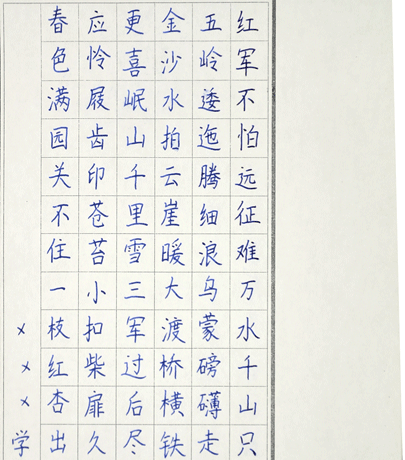 红军不怕远征难万水千山只
五岭逶迤腾细浪乌蒙磅礴走
金沙水拍云崖暖大渡桥横铁
更喜岷山千里雪三军过后尽
应怜屐齿印苍苔小扣柴扉久
春色满园关不住一枝红杏出
×××学